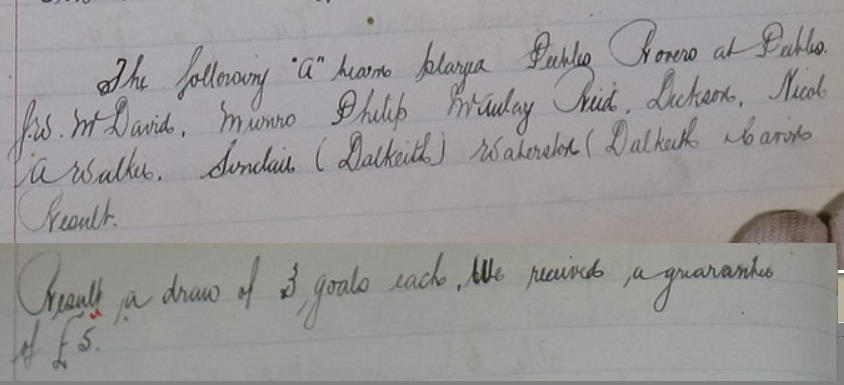 The following "A" team played Peebles Rovers at Peebles.
J.W. McDavid, Munro Philip McAulay Reid, Dickson, Nicol
A Walker. Sinclair (Dalkeith) Waterston (Dalkeith
Result.
Result, a draw of 3, goals each, We received, a guarantee
of £5.